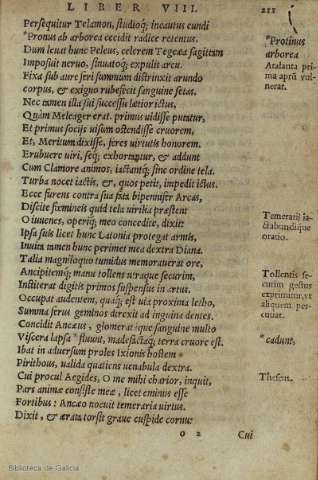 LIBER VIII.
211
Persequitur Telamon, studioq́; incautus eundi
*Pronus ab arborea cecidit radice retentus.
Dum leuat hunc Peleus, celerem Tegeæa sagittam
Imposuit neruo, sinuatoq́; expulit arcu.
Fixa sub aure feri summum distrinxit arundo
corpus, & exiguo rubefecit sanguine setas.
Nec tamen illa sui successu lætior ictus,
Quàm Meleager erat. primus uidisse putatur,
Et primus socijs uisum ostendisse cruorem,
Et, Meritum dixisse, feres uirtutis honorem.
Erubuere uiri, seq́; exhortantur, & addunt
Cum Clamore animos, iactantq́; sine ordine tela.
Turba nocet iactis, &, quos petit, impedit ictus.
Ecce furens contra sua fata bipennifer Arcas,
Discite fœmineis quid tela uirilia præstent
O iuuenes, operiq́; meo concedite, dixit
Ipsa suis licet hunc Latonia protegat armis,
Inuita tamen hunc perimet mea dextra Diana.
Talia magniloquo tumidus memorauerat ore,
Ancipitemq́; manu tollens utraque securim,
Institerat digitis primos suspensus in artus.
Occupat audentem, quaq́; est uia proxima letho,
Summa ferus geminos direxit ad inguina dentes.
Concidit Ancæus, glomerataque sanguine multo
Viscera lapsa *fluunt, madefactaq́; terra cruore est.
Ibat in aduersum proles Ixionis hostem
Pirithous, ualida quatiens uenabula dextra.
Cui procul Aegides, O me mihi charior, inquit,
Pars animæ consiste meæ, licet eminus esse
Fortibus: Ancæo nocuit temeraria uirtus.
Dixit, & ærata torsit graue cuspide cornu:
o 2
Cui
*Protinus
arborea
Atalanta pri
ma aprũ vul-
nerat.
Temerarij ia-
ctabundaque
oratio.
Tollentis se-
curim gestus
exprimitur, vt
aliquem per-
cutiat.
*cadunt,
Thesen.
Biblioteca de Galicia